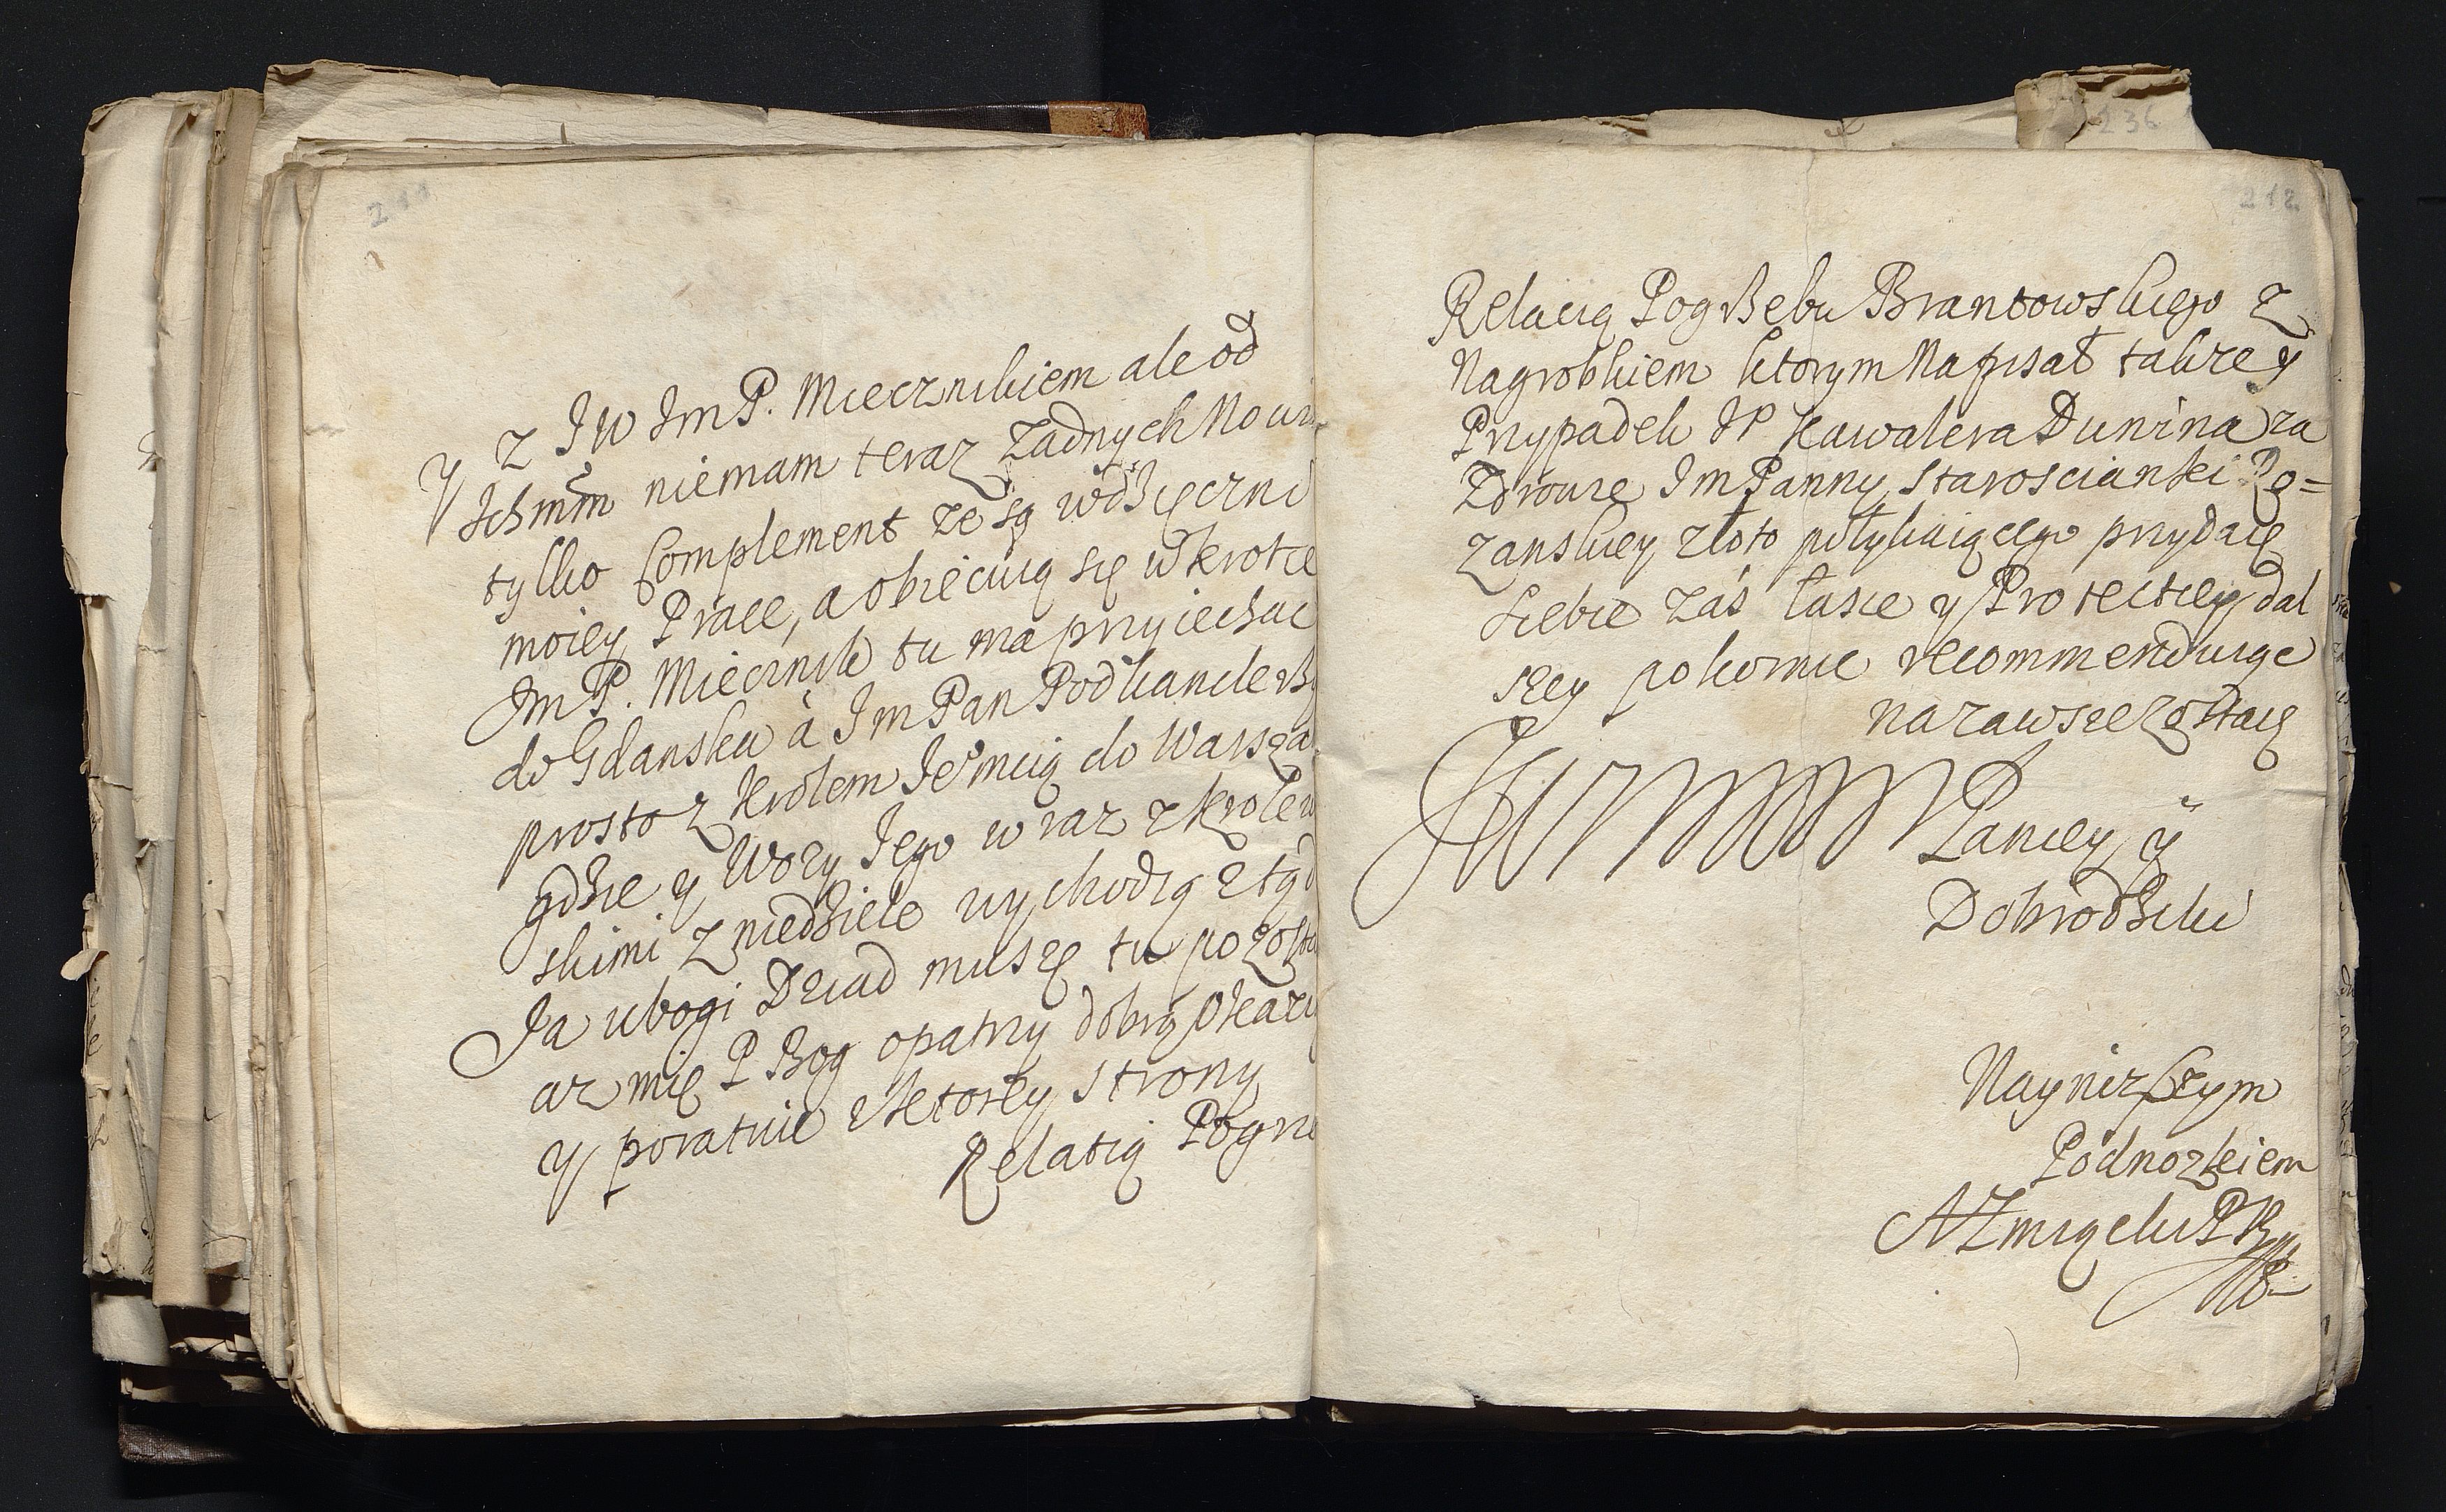 211
z JW Im P. Miecznikiem ale od
Y Ichmm niemam teraz Zadnych Nowi
tylko Complement ze są wdzięczni
moiey Prace, a obiecuią się wkrotce
Im P. Miecznik tu ma przyiechac
do Gdanska à Im Pan Podkanclerzy
prosto z Krolem Ie̊mcią do Warsza
gdzie y Wozy Jego wraz z Krolew
skimi z niedziele wychodzą ztąd
Ja ubogi Dziad muszę tu pozosta
az mię P Bog opatrzy dobrą Okazi
y poratuie z ktorey strony
Relatią Pogrze
236
212
Relacią Pogrzebu Brantowskiego z
Nagrobkiem ktorym Napisał takze y
Przypadek JP Kawalera Dunina za
Zdrowie Im Panny Starościanki Ro=
zanskiey złoto połykaiącego przydaię
Siebie zaś łasce y Protectiey dal
szey pokornie recommenduiąc
na zawsze zostaię
Paniey y
Dobrodziki
Naynizszym
Podnozkiem